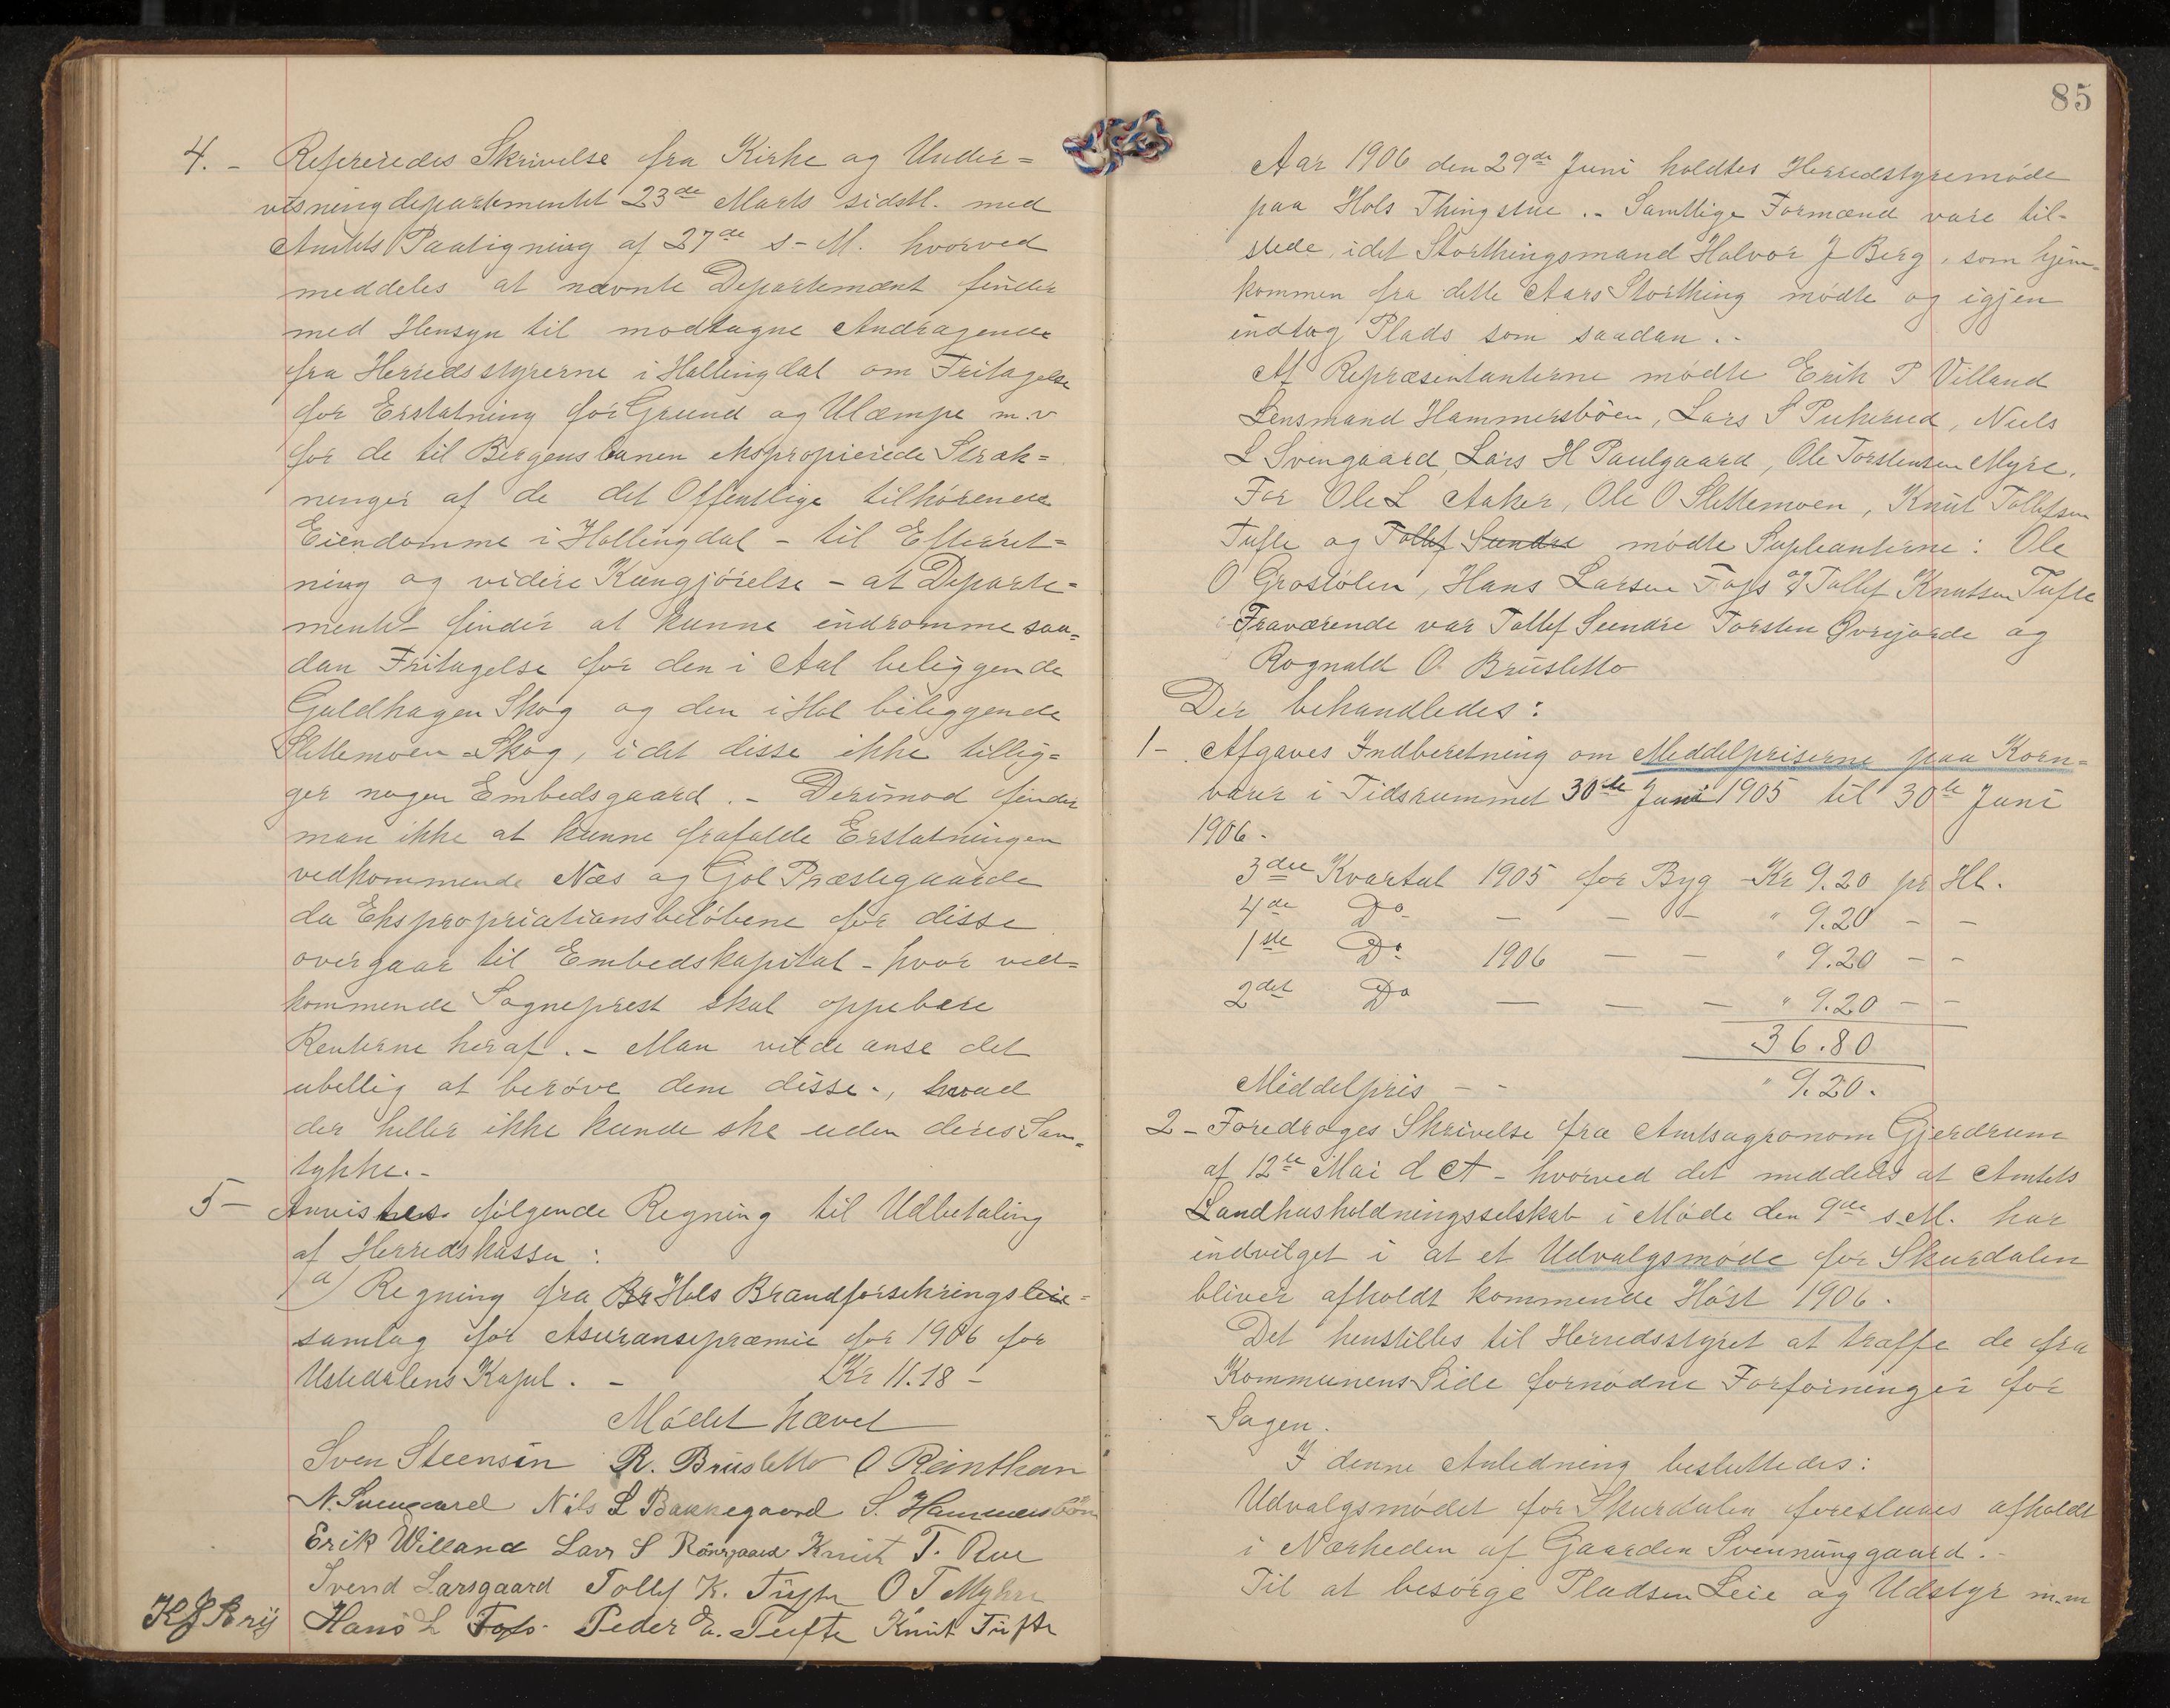 4. - Refereredes Skrivelse fra Kirke og Under=
visningdepartementet 23de Marts sidstl. med
Amtets Paategning af 27de s-M. hvorved
meddeles at nævnte Departement finder
med Hensyn til modtagne Andragender
fra Herredsstyrerne i Hallingdal om Fritagelse
for Erstatning for Grund og Ulæmpe m.v
for de til Bergensbanen ekspropierede Stræk=
ninger af de det Offentlige tilhörende
Eiendomme i Hallingdal - til Efterret=
ning og videre Kungjörelse - at Departe=
mentet finder at kunne indrømme saa=
dan Fritagelse for den i Aal beliggende
Guldhagen Skog og den i Hol beliggende
Slettemoen Skog, idet disse ikke tillig=
ger nogen Embedsgaard. - Derimod finder
man ikke at kunne frafalde Erstatningen
vedkommende Næs og Gol Præstegaarde
da Ekspropriationsbelöbene for disse
overgaar til Embedskapital - hvor ved=
kommende Sogneprest skal oppebære
Renterne heraf. - Man vilde anse det
ubellig at beröve dem disse -, hvad
der heller ikke kunde ske uden deres Sam=
tykke. -
5 - Anvistes følgende Regning til Udbetaling
af Herredskassen:
a) Regning fra Br Hols Brandforsekrings
samlag for Asuransepræmie for 1906 for
Ustedalens Kapel. - Kr 11.18 -
Mödet hævet
Sven Steensen R. Brusletto O Reinthon
N. Svengaard Nils L Bakkegaard S. Hammersböen
Erik Willand Lars S Knut T. Rue
Svend Larsgaard Tollef K. Tufte O T Myhre
Hans L Foss Peder E. Tufte Knut Tufte
85
Aar 1906 den 29de Juni holdtes Herredstyremöde
paa Hols Thingstue. - Samtlige Formænd vare til-
stede, idet Storthingsmand Halvor J Berg, som hjem-
kommen fra dette Aars Storthing mødte og igjen
indtog Plads som saadan. -
Af Repræsentanterne mødte Erik P Villand
Lensmand Hammersböen, Lars S Pukerud, Niels
L Svengaard, Lars H Paulgaard, Ole Torstensen Myre.
For Ole L Aaker, Ole O Slettemoen, Knut Tollefsen
Tufte og Tollef Sundre mødte Supleanterne: Ole
O Grostölen, Hans Larsen Foss & Tollef Knutsen Tufte
Fraværende var Tollef Sundre Torsten Øvrejorde og
Rognald O. Brusletto
Der behandledes:
1 - Afgaves Indberetning om Meddelpriserne paa Korn=
varer i Tidsrummet 30te Juni 1905 til 30te Juni
1906 -
3die Kvartal 1905 for Byg Kr 9.20 pr Hl.
4de Do - - - " 9.20 - -
1ste Do 1906 - - " 9.20 - -
2det Do - - - " 9.20 - -
36.80
Middelpris - - " 9.20.
2 - Foredroges Skrivelse fra Amtsagronom Gjerdrum
af 12te Mai d A - hvorved det meddeles at Amtets
Landhusholdningsselskab i Möde den 9de s.M. har
indvilget i at et Udvalgsmöde for Skurdalen
bliver afholdt kommende Höst 1906.
Det henstilles til Herredsstyret at træffe de fra
Kommunens Side fornödne Forföininger for
Sagen.
I denne Anledning besluttedes:
Udvalgsmödet for Skurdalen foreslaaes afholdt
i Nærheden af Gaarden Svennunggaard. -
Til at besörge Pladsen Leie og Udstyr m.m